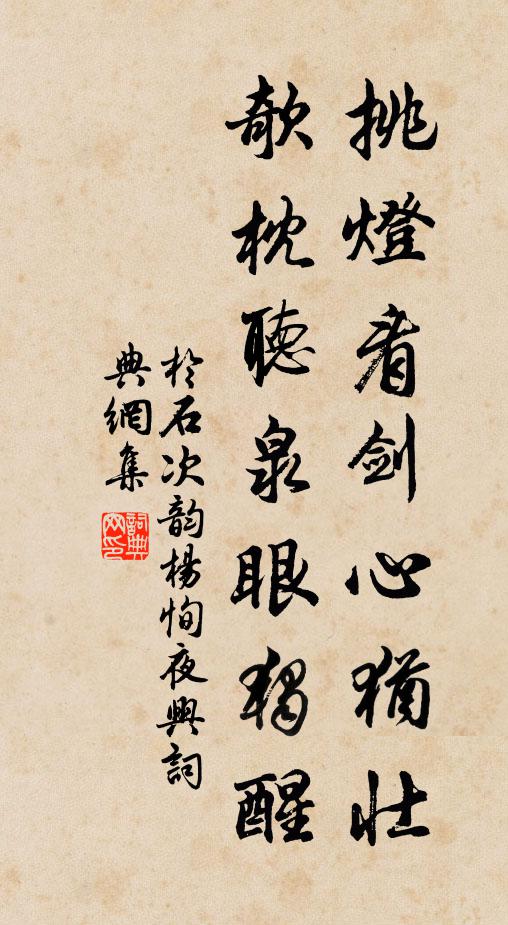 挑燈看劍心猶壯
欹枕聽泉眼獨醒
於石次韵楊恂夜興詞
典網集
詞典網印